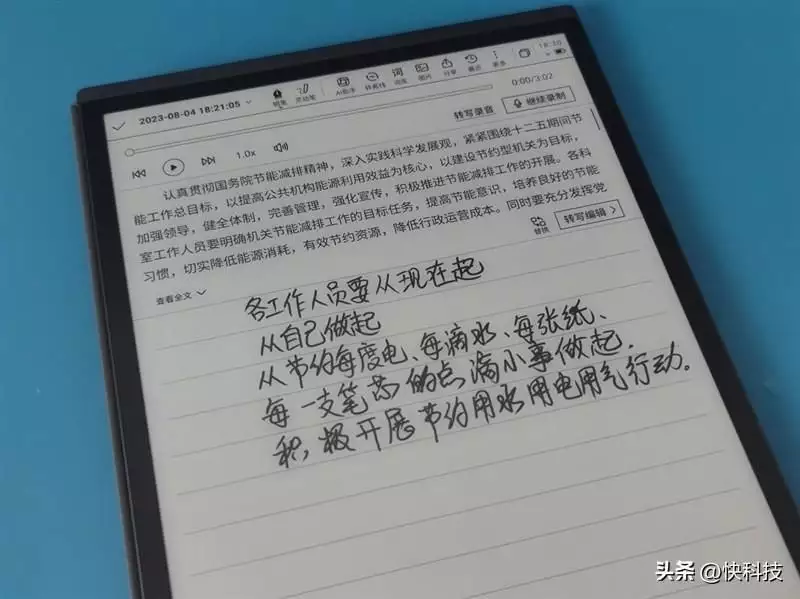 18:30
2023-08-04 18:21:05
AI助手
分享
更多
0:00/3:02
1.0x
转写录音
继续录制
认真贯彻国务院节能减排精神，深入实践科学发展观，紧紧围绕十二五期间节
能工作总目标，以提高公共机构能源利用效益为核心，以建设节约型机关为目标，
加强领导，健全体制，完善管理，强化宣传，积极推进节能减排工作的开展。各科
室工作人员要明确机关节能减排工作的目标任务，提高节能意识，培养良好的节能
习惯，切实降低能源消耗，有效节约资源，降低行政运营成本。同时要充分发挥党
替换
转写编辑
查看全文
各工作人员要从现在起
从自己做起
从节约每度电、每滴水、每张纸、
每一支笔芯的点滴小事做起.
积极开展节约用水用电用气行动。
头条 @快科技